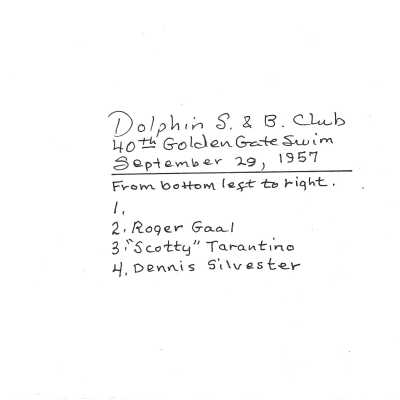 Dolphin S. & B. Club
40th Golden Gate Swim
September 29, 1957
From bottom left to right.
1.
2. Roger Gaal
3. "Scotty" Tarantino
4. Dennis Silvester